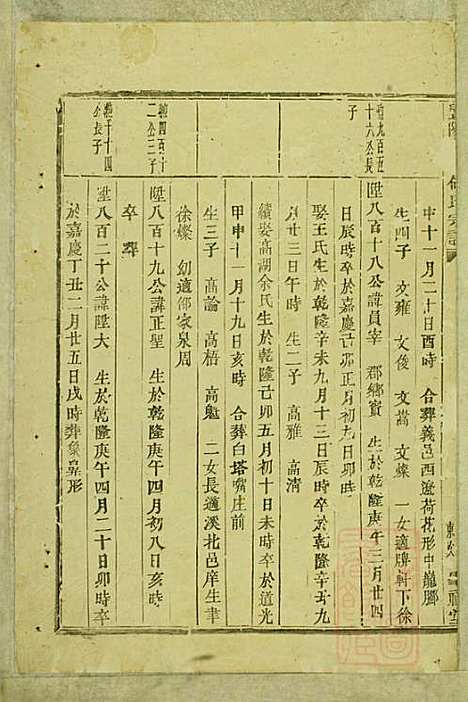 申十一月二十日酉時 合葬義邑西遼荷花形中龍腳
生四子 文雍 文俊 文嵩 文燦 一女適牌軒下徐
九百五十六公長子
陞八百十八公諱員宰 郡鄉賓 生於乾隆庚午三月廿四
日辰時卒於嘉慶己卯正月初九日卯時
娶王氏生於乾隆辛未九月十三日辰時卒於乾隆辛丑九
月廿三日午時 生二子 高雅 高清
續娶高湖余氏生於乾隆己卯五月初十日未時卒於道光
甲申十一月十九日亥時 合葬白塔嘴庄前
生三子 高論 高梧 高魁 二女長適溪北邑庠生聿
徐燦 幼適鄧家泉周
四百十二公三子
陞八百十九公諱正聖 生於乾隆庚午四月初八日亥時
卒 葬
千十四公長子
陞八百二十公諱陞大 生於乾隆庚午四月二十日卯時卒
於嘉慶丁丑二月廿五日戌時葬象鼻形